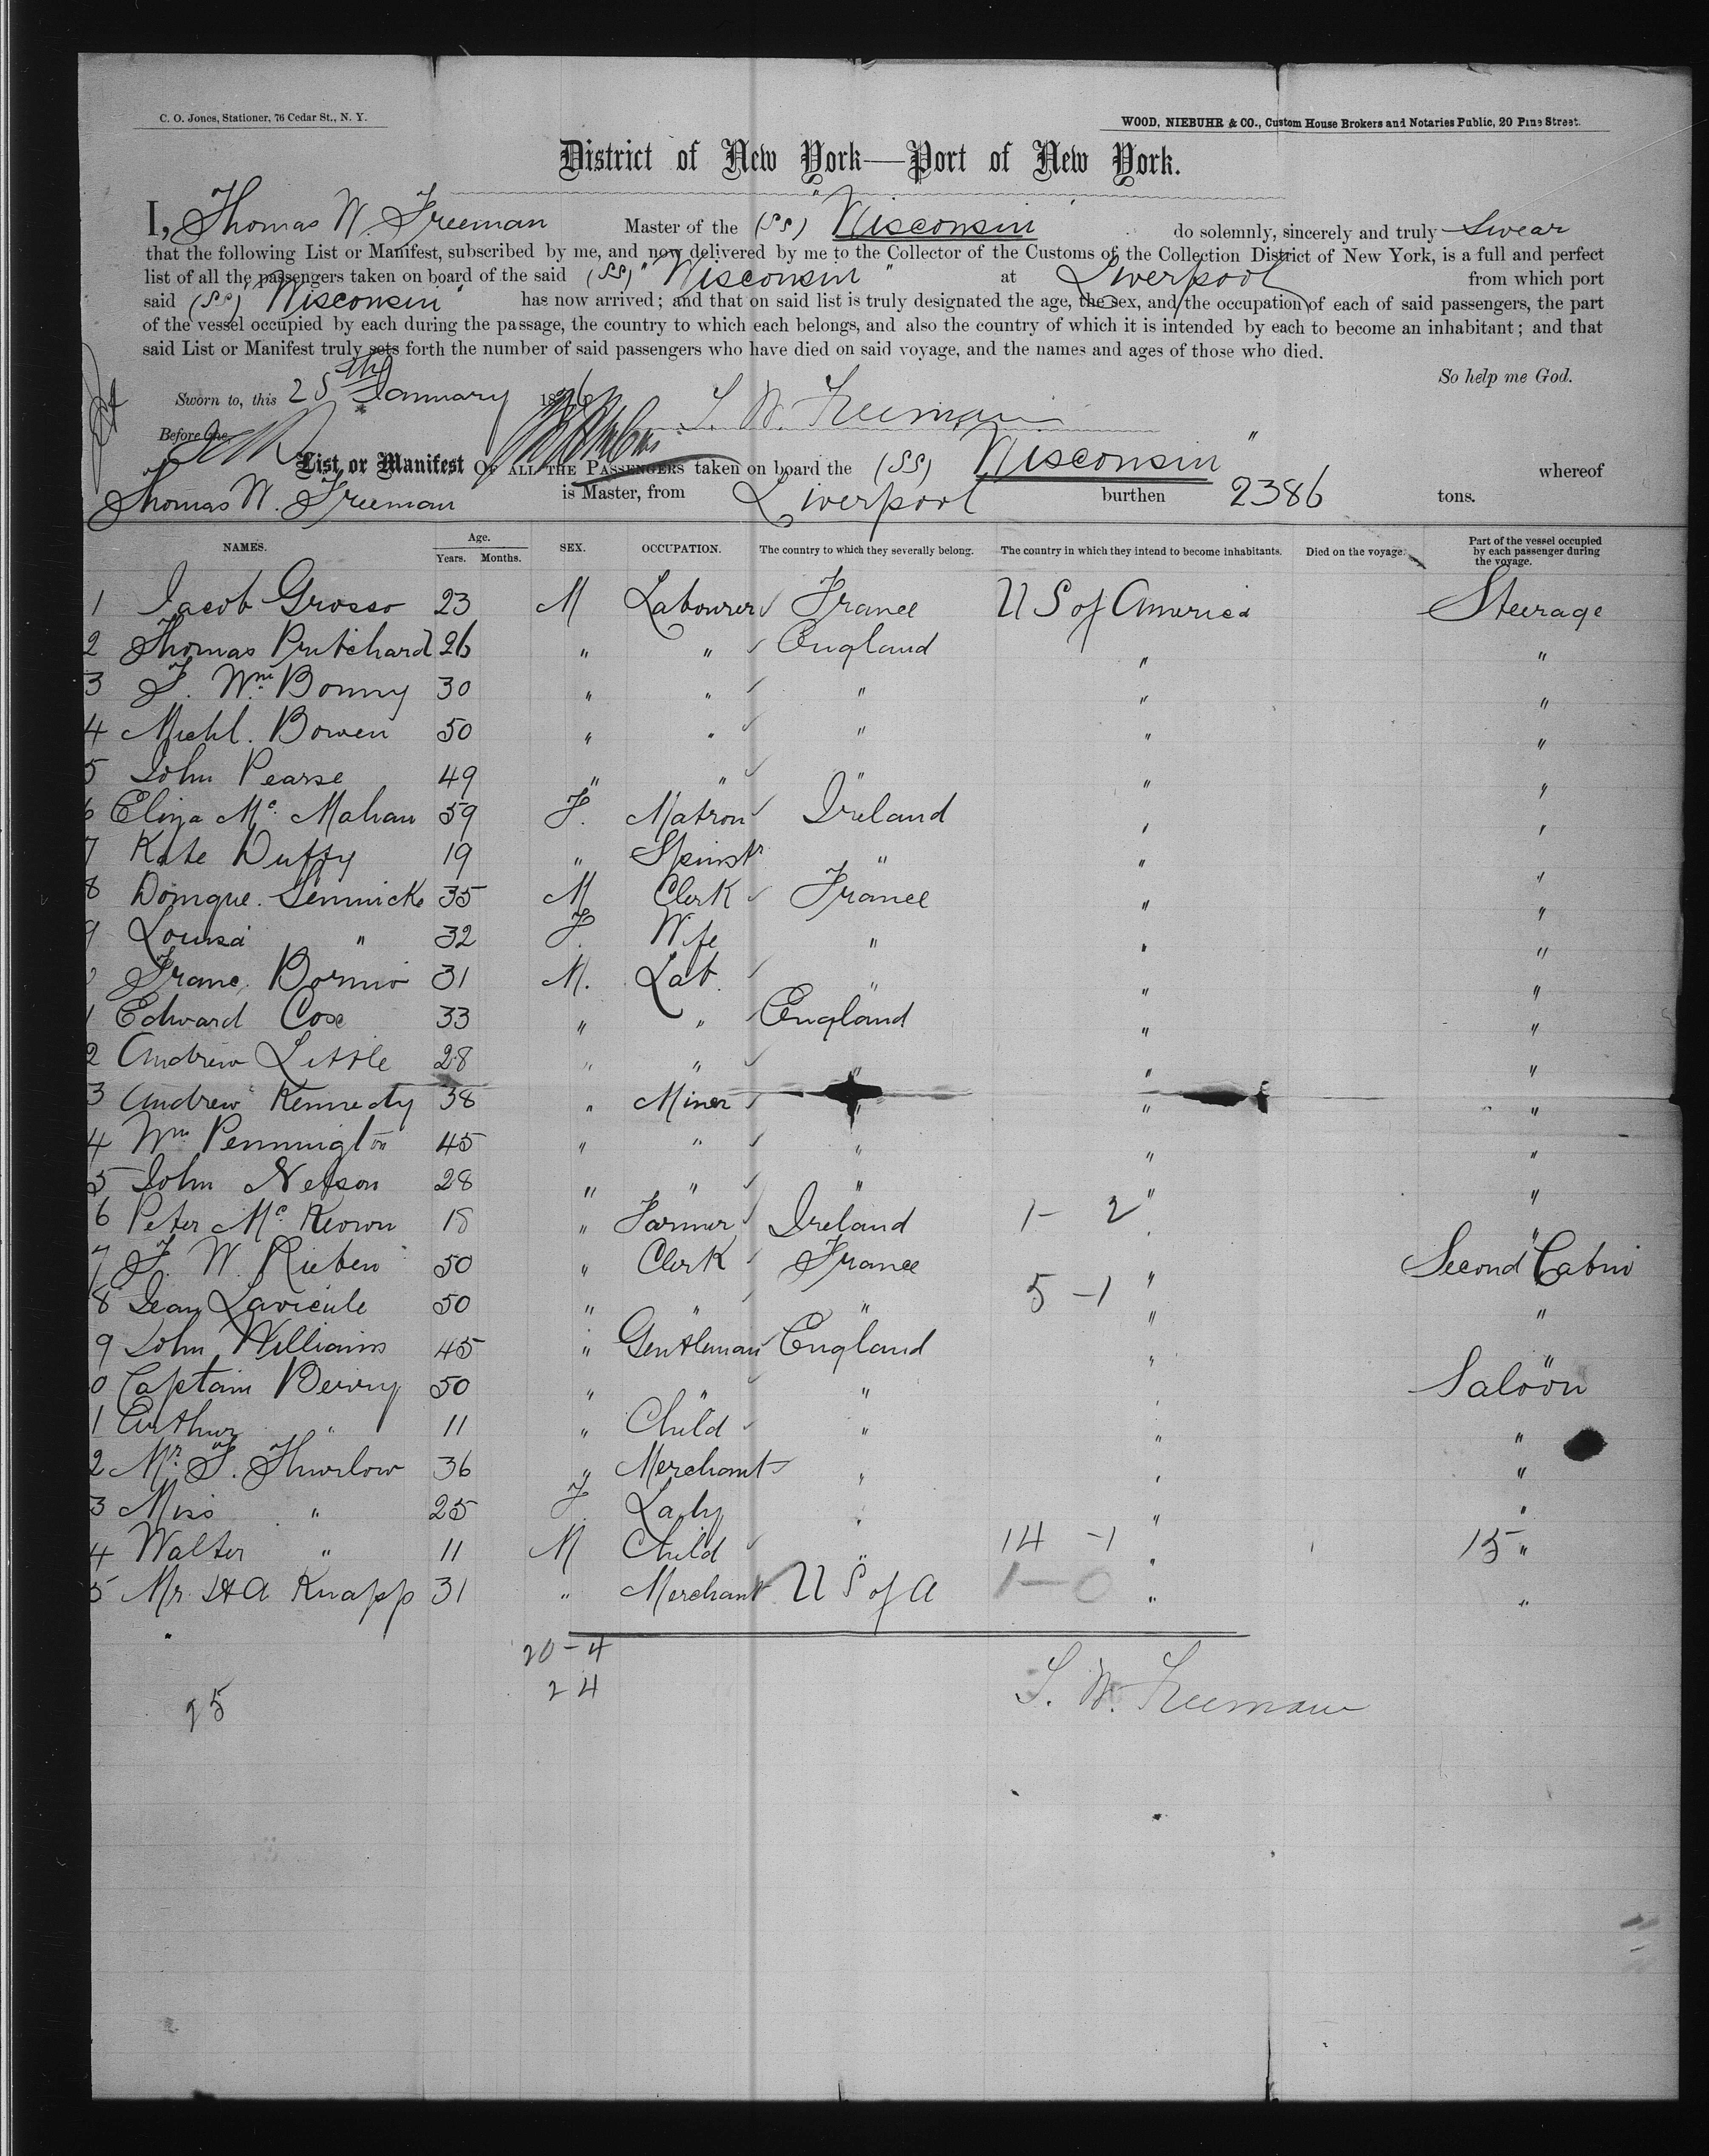 C. O. Jones, Stationer, 76 Cedar St., N. Y.
WOOD, NIEBUHR & CO., Custom House Brokers and Notaries Public, 20 Pine Street.
District of New York—Port of New York.
I, Thomas W. Freeman Master of the (SS) "Wisconsin" do solemnly, sincerely and truly Swear
that the following List or Manifest, subscribed by me, and now delivered by me to the Collector of the Customs of the Collection District of New York, is a full and perfect
list of all the passengers taken on board of the said (SS) "Wisconsin" at Liverpool from which port
said (SS) "Wisconsin" has now arrived; and that on said list is truly designated the age, the sex, and the occupation of each of said passengers, the part
of the vessel occupied by each during the passage, the country to which each belongs, and also the country of which it is intended by each to become an inhabitant; and that
said List or Manifest truly sets forth the number of said passengers who have died on said voyage, and the names and ages of those who died.
So help me God.
Sworn to, this 25th January 18
T. W. Freeman
Before me,
List or Manifest OF ALL THE PASSENGERS taken on board the (SS) Wisconsin " whereof
Thomas W. Freeman is Master, from Liverpool burthen 2386 tons.
NAMES. Age. Years. Months. SEX. OCCUPATION. The country to which they severally belong. The country in which they intend to become inhabitants. Died on the voyage. Part of the vessel occupied by each passenger during the voyage.
1 Jacob Grosso 23 M Labourer France U S of America Steerage
2 Thomas Pritchard 26 " " England " "
3 J. Wm Bonny 30 " " " " "
4 Michl. Bowen 50 " " " " "
5 John Pearse 49 " " " " "
6 Eliza Mc Mahan 59 F. Matron Ireland " "
7 Kate Duffy 19 " Spinstr " " "
8 Domque. 35 M Clerk France " "
9 Louisa " 32 F. Wife " " "
Franc. 31 M. Lab. " " "
1 Edward Cox 33 " " England " "
2 Andrew Little 28 " " " " "
3 Andrew Kennedy 38 " Miner " " "
4 Wm Pennington 45 " " " " "
5 John Nelson 28 " " " " "
6 Peter Mc Keown 18 " Farmer Ireland 1 - 2 " "
7 J. W. Rieben 50 " Clerk France " Second Cabin
8 Jean 50 " " " 5 - 1 " "
9 John Williams 45 " Gentleman England " "
0 Captain Berry 50 " " " " Saloon
1 Arthur " 11 " Child " " "
2 Mr. T. Thurlow 36 " Merchant " " "
3 Miss " 25 F. Lady " " "
4 Walter " 11 M Child " 14 - 1 " 15 "
5 Mr. H A Knapp 31 " Merchant U S of A 1 - 0 " "
20 - 4
24
T. W. Freeman
25